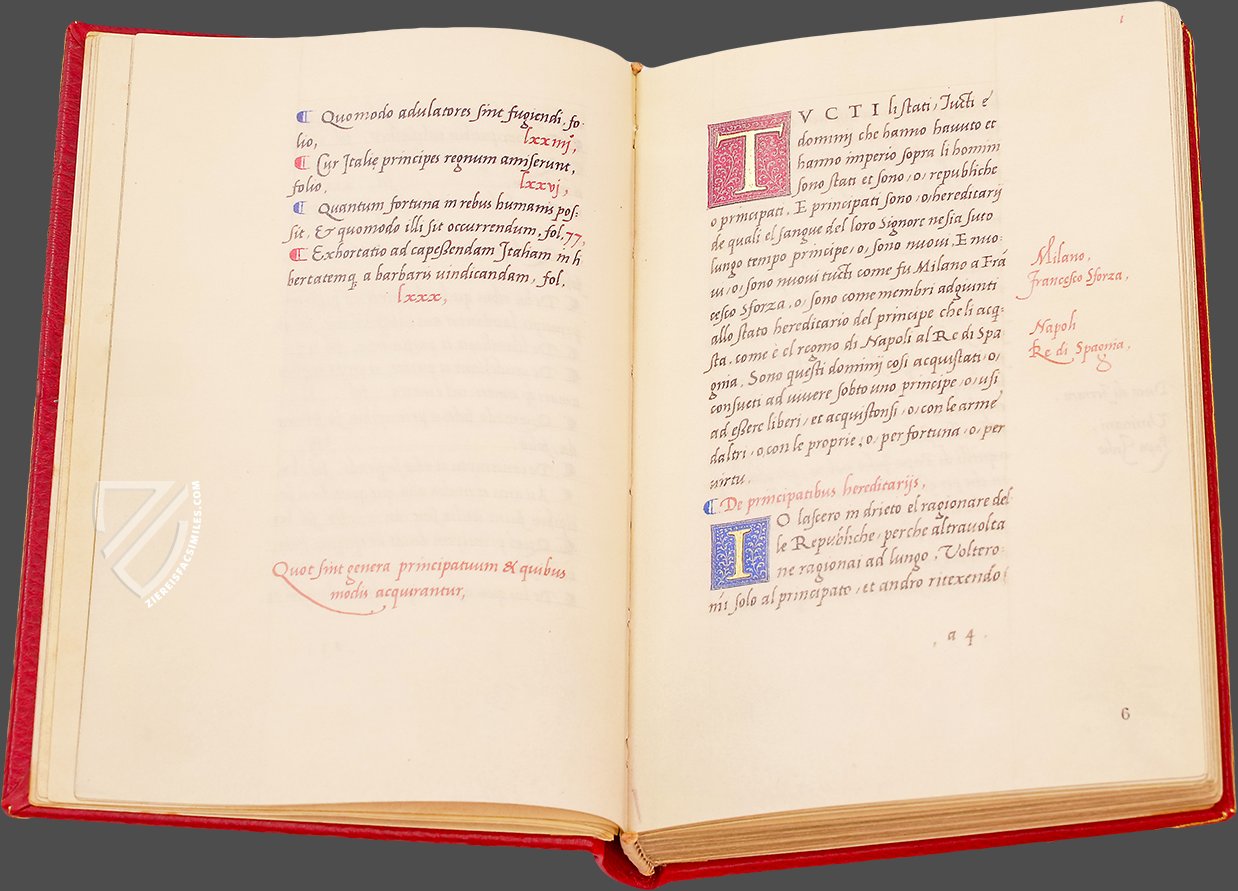 Quomodo adulatores sint fugiendi, fo-
lio, lxxiiij,
Cur Italię principes regnum amiserunt,
folio, lxxvj,
Quantum fortuna in rebus humanis pos-
sit, & quomodo illi sit occurrendum, fol, 77,
Exhortatio ad capeßendam Italiam in li
bertatemq; a barbaris uindicandam, fol,
lxxx,
Quot sint genera principatuum & quibus
modis acquirantur,
ZIEREISFACSIMILES.COM
1
TVCTI li stati, Tucti e
dominij che hanno hauuto et
hanno imperio sopra li homini
sono stati et sono, o, republiche
o principati, E principati sono, o, hereditarij
de quali el sangue del loro Signore nesia suto
lungo tempo principe, o, sono nuoui, E nuo-
ui, o, sono nuoui tucti come fu Milano a Frā
cesco Sforza, o, sono come membri adgiunti
allo stato hereditario del principe che li acq-
sta, come è el regno di Napoli al Re di Spa-
gnia, Sono questi dominij cosi acquistati, o,
consueti ad uiuere sobto uno principe, o, usi
ad eßere liberi, et acquistonsi, o, con le arme
daltri, o, con le proprie, o, per fortuna, o, per
uirtu,
Milano,
Francesco Sforza,
Napoli
Re di Spagnia,
De principatibus hereditarijs,
IO lascero in drieto el ragionare del
le Republiche, perche altra uolta
ne ragionai ad lungo, Voltero-
mi solo al principato, et andro ritexendo
, a 4 .
6